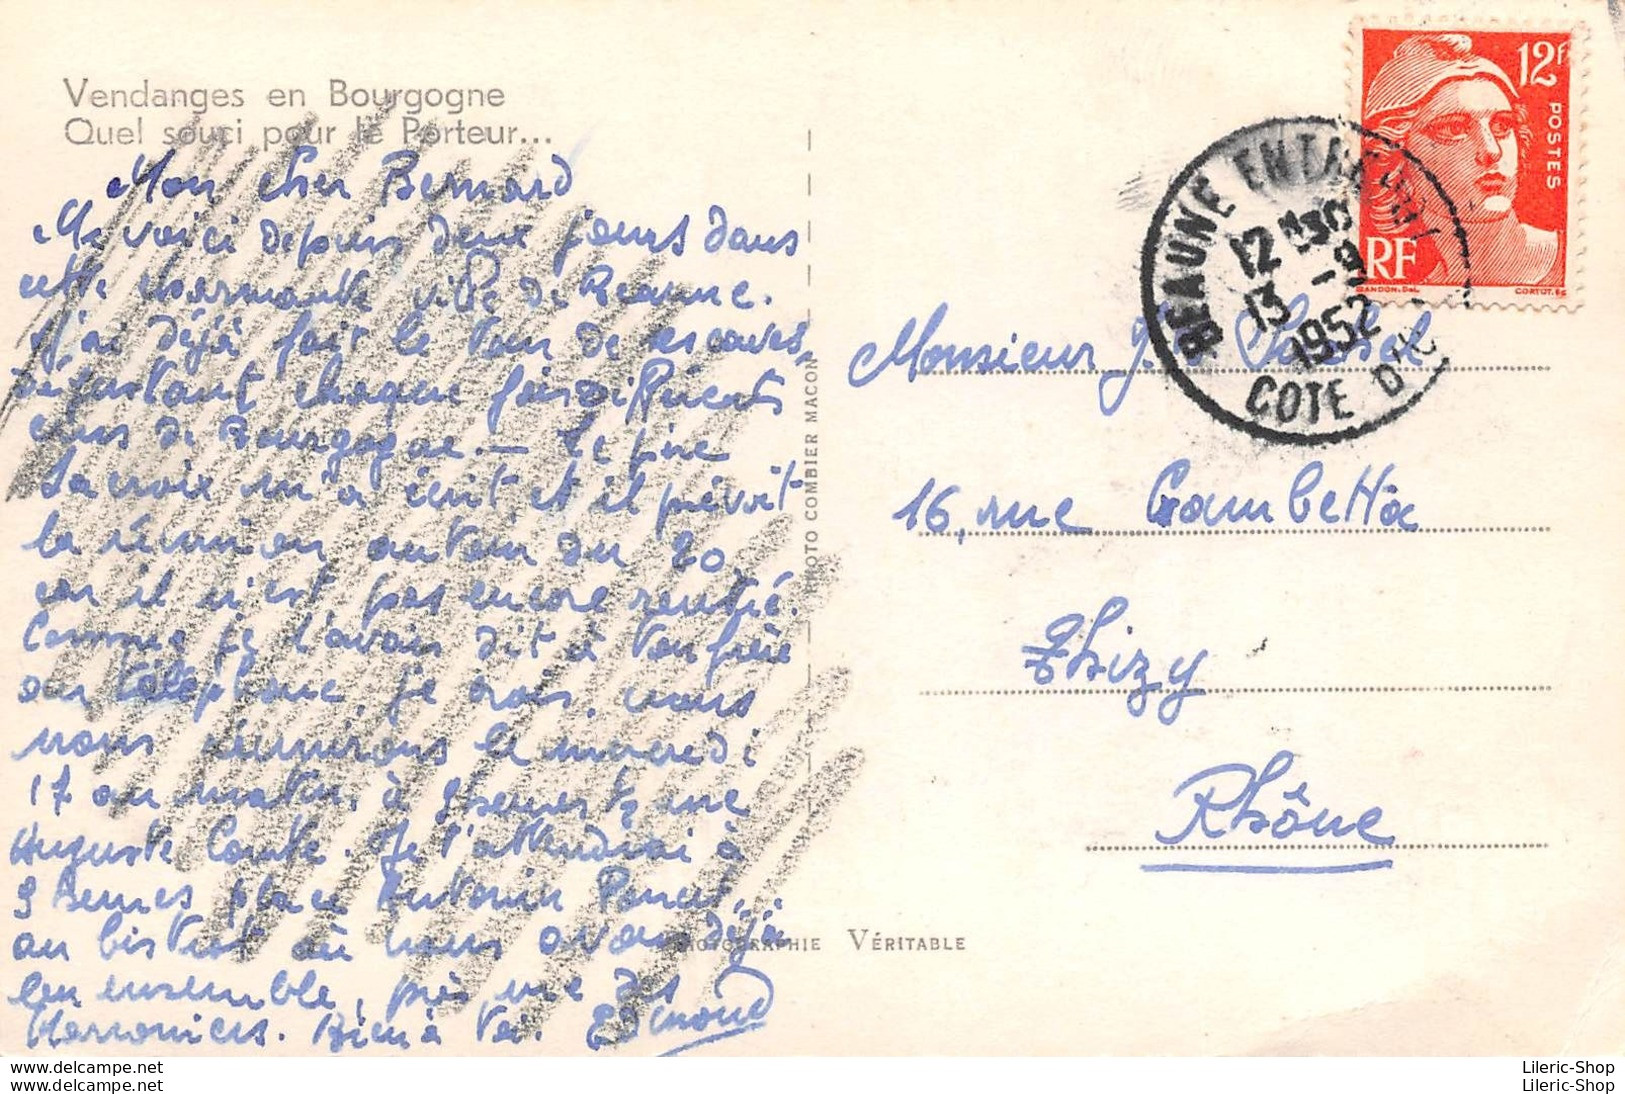 Vendanges en Bourgogne
Quel souci pour le Porteur...
Mon cher Bernard
Me voici depuis deux jours dans
cette charmante ville de Beaune.
J'ai déjà fait le tour de caves,
dégustant chaque fois différents
crus de Bourgogne. — Le père
Lacroix m'a écrit et il prévoit
la réunion autour du 20
car il n'est pas encore rentré.
Comme je l'avais dit à ton frère
au téléphone, je crois, nous
nous réunirons le mercredi
17 au matin, à rue
Auguste Comte. Je t'attendrai à
9 heures place Antonin Poncet,
au bistrot où nous avons déjà
bu ensemble, près rue des
Marronniers. Bien à toi. Edmond
PHOTO COMBIER MACON
PHOTOGRAPHIE VÉRITABLE
12F
POSTES
RF
GANDON.Del.
CORTOT.Sc
BEAUNE ENTREPOT
12 H30
13 -9
1952
COTE D'OR
Monsieur J.
16, rue Gambetta
Thizy
Rhône
Lileric-Shop
Lileric-Shop